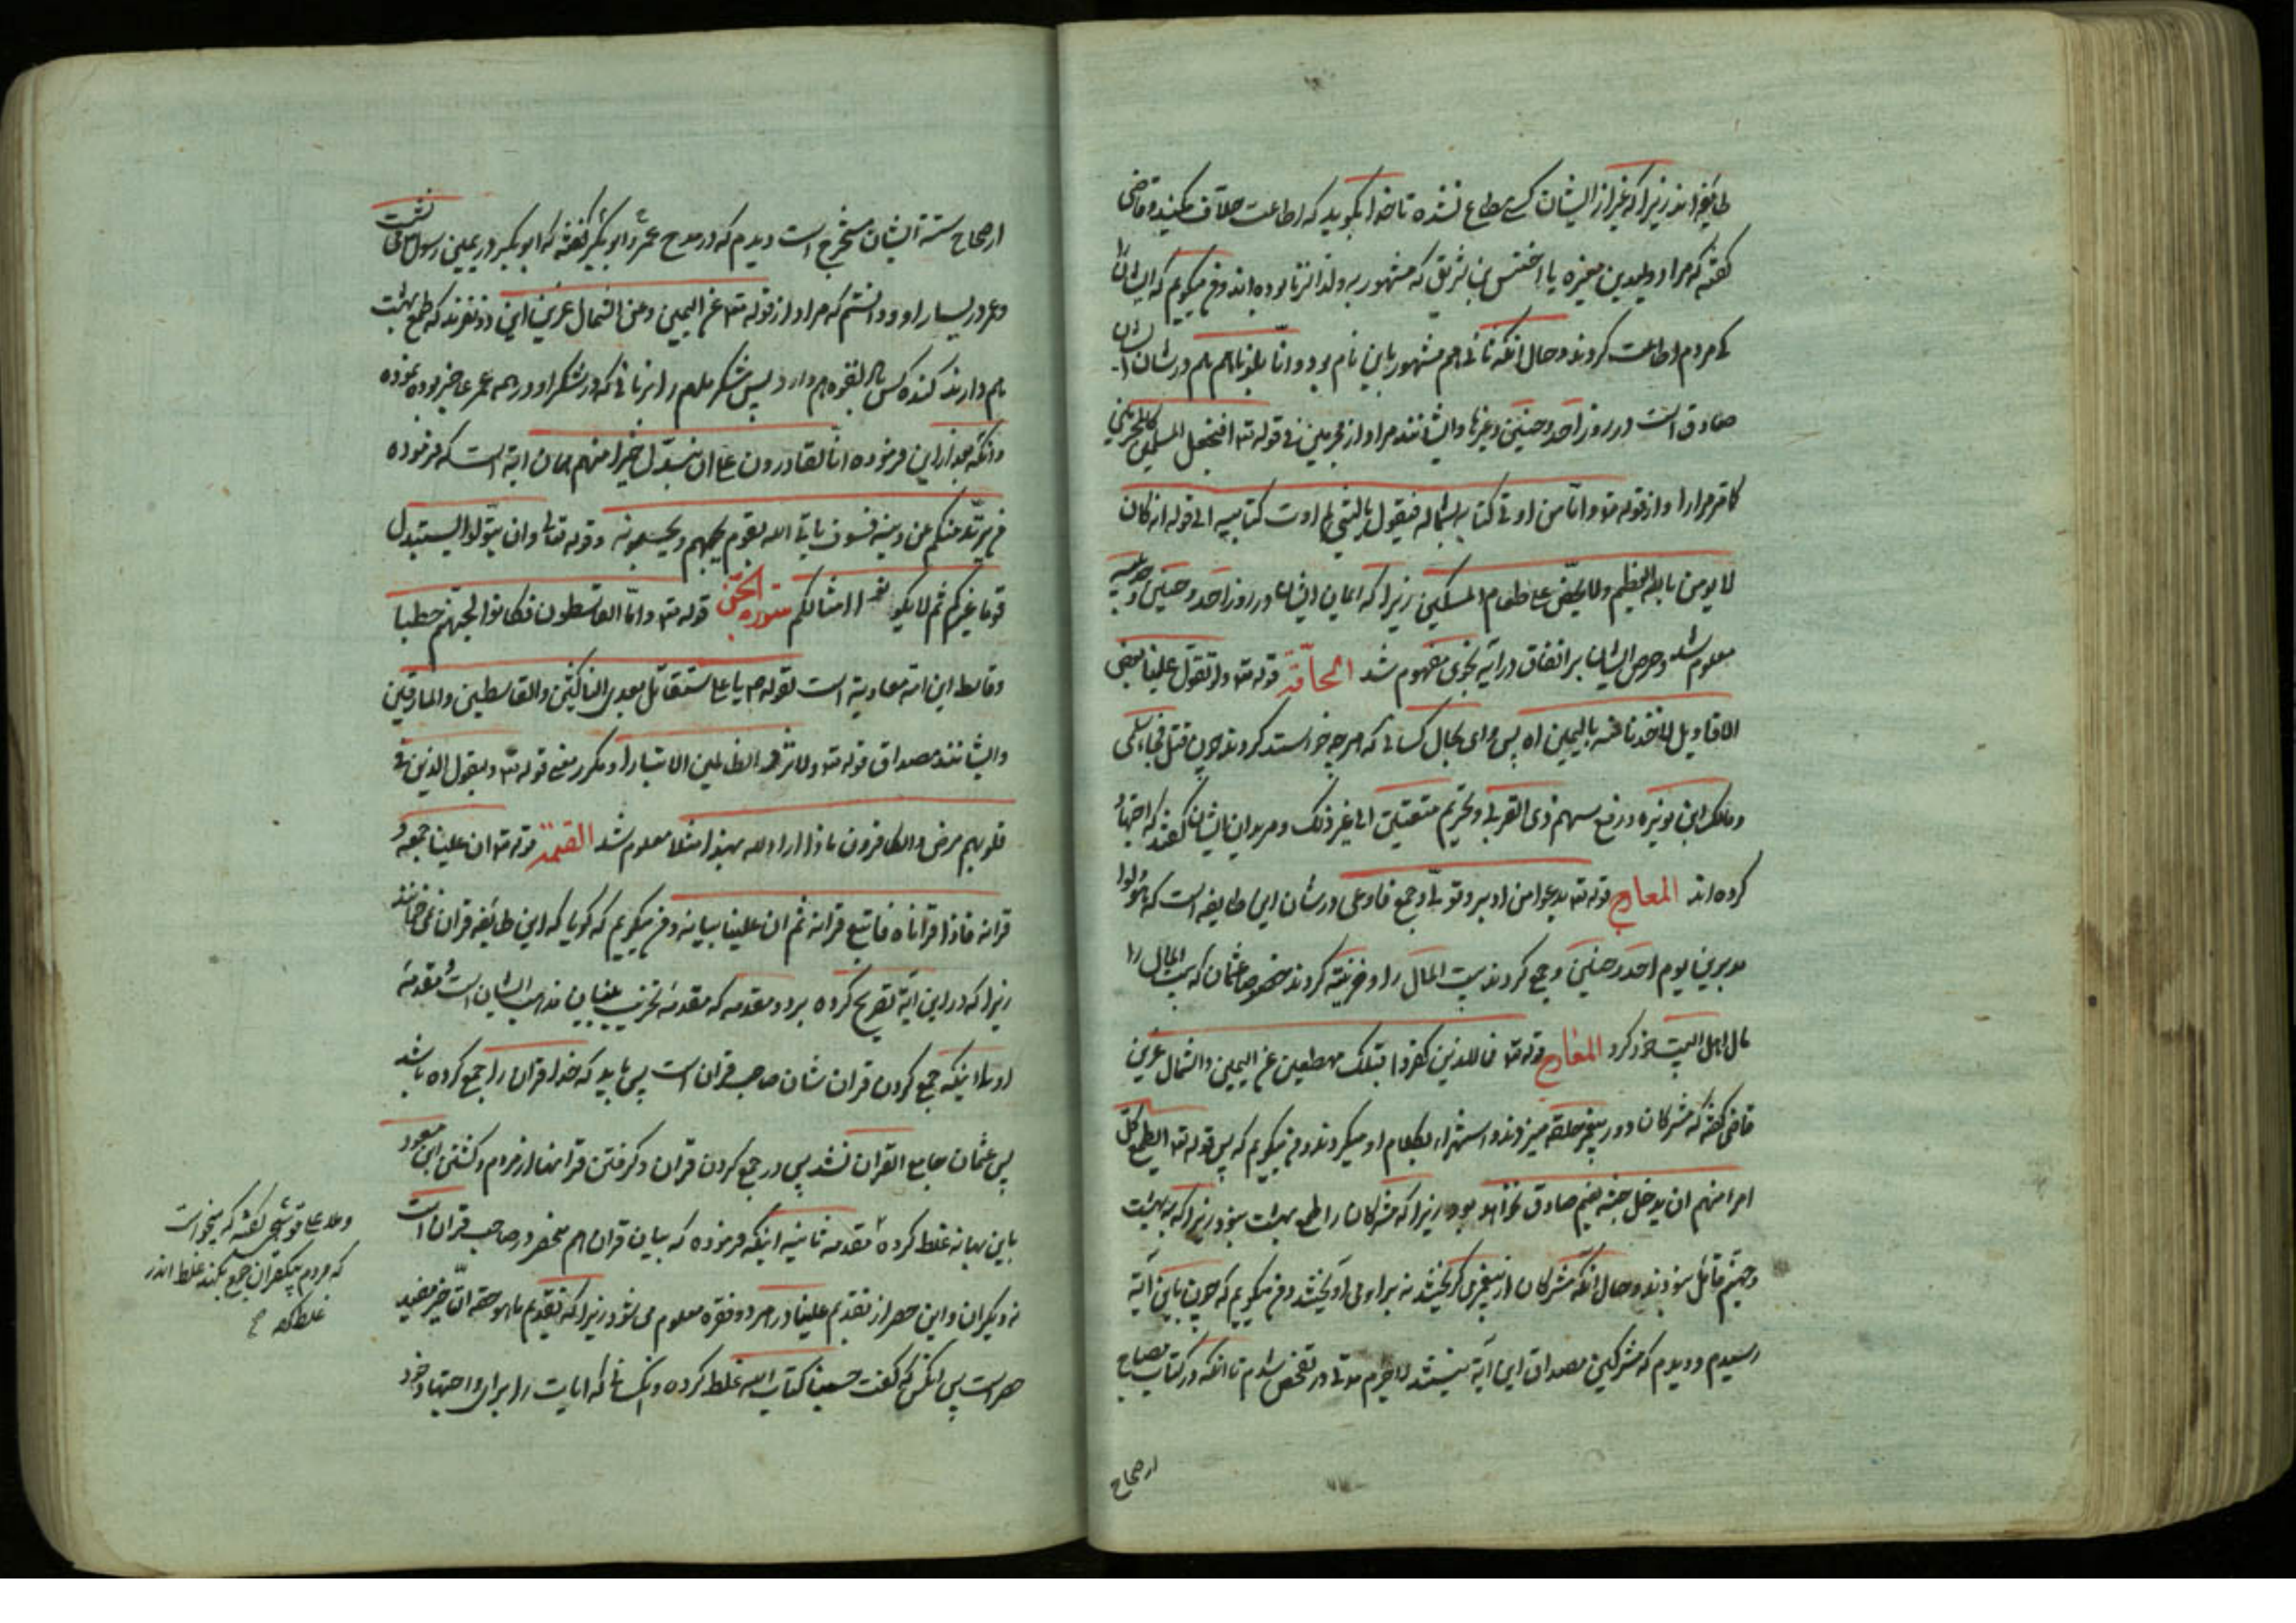 طایفه‌اند زیرا که غیر از ایشان کسی مطاع نشده تا خدا بگوید که اطاعت حلاف مکنید و قاضی
گفته که مراد ولید بن مغیره یا اخنس بن شریق که مشهور به ولد الزنا بوده‌اند و من میگویم که ایشانرا
کی مردم اطاعت کردند و حال آنکه ثانی هم مشهور باین نام بود و انا بلوناهم هم در شان ایشان
صادق است در روز احد و حنین و غیرها و ایشانند مراد از مجرمین در قوله تع افنجعل المسلمین کالمجرمین
کا مر مرارا و از قوله تع و اما من اوتی کتابه بشماله فیقول یا لیتنی لم اوت کتابیه الی قوله انه کان
لا یومن بالله العظیم و لا یحض علی طعام المسکین زیرا که ایمان ایشان در روز احد و حنین و حدیبیه
معلوم شد و حرص ایشان بر انفاق در آیه نجوی مفهوم شد الحاقه قوله تع و لو تقول علینا بعض
الاقاویل لاخذنا منه بالیمین اه پس وای بحال کسانی که هر چه خواستند کردند چون قتل فجاءه سلمی
و مالک ابن نویره و رفع سهم ذی القربی و تحریم متعتین الی غیر ذلک و مریدان ایشان گفتند که اجتهاد
کرده‌اند المعارج قوله تع یدعوا من ادبر و تولی و جمع فاوعی در شان این طایفه است که تولوا
مدبرین یوم احد و حنین و جمع کردند بیت المال را و خزینه کردند خصوصا عثمان که بیت المال را
مال اهل البیت خود کرد المعارج قوله تع فما للذین کفروا قبلک مهطعین عن الیمین و الشمال عزین
قاضی گفته که مشرکان دور پیغمبر حلقه میزدند و استهزاء بکلام او میکردند و من میگویم که پس قوله تع ایطمع کل
امرا منهم ان یدخل جنة نعیم صادق نخواهد بود زیرا که مشرکان را طمع بهشت نبود زیرا که به بهشت
و جهنم قائل نبودند و حال آنکه مشرکان از پیغمبر میگریختند نه بر او می‌آویختند و من میگویم که چون باین آیه
رسیدم و دیدم که مشرکین مصداق این آیه نیستند لاجرم مدتی در تفحص شدم تا آنکه در کتاب مصابیح
از صحاح
از صحاح سته ایشان مستخرج است دیدم که در مدح عمر و ابو بکر گفته که ابو بکر در یمین رسول می‌نشست
و عمر در یسار او و دانستم که مراد از قوله تع عن الیمین و عن الشمال عزین این دو نفرند که طمع بهشت
هم دارند
و آنکه بعد از این فرموده انا لقادرون علی ان نبدل خیرا منهم همان آیه است که فرموده
من یرتد منکم عن دینه فسوف یاتی الله بقوم یحبهم و یحبونه و قوله تعالی و ان تتولوا یستبدل
قوما غیرکم ثم لا یکونوا امثالکم سوره الجن قوله تع و اما القاسطون فکانوا لجهنم حطبا
و قاسط این امه معاویه است لقوله ص یا علی ستقاتل بعدی الناکثین و القاسطین و المارقین
و ایشانند مصداق قوله تع و لا تزد الظالمین الا تبارا و مکرر معنی قوله تع و لیقول الذین فی
قلوبهم مرض و الکافرون ماذا اراد الله بهذا مثلا معلوم شد القیمة قوله تع ان علینا جمعه و
قرانه فاذا قراناه فاتبع قرانه ثم ان علینا بیانه و من میگویم که گویا که این طایفه قران نمی‌خوانند
زیرا که در این آیه تصریح کرده بر دو مقدمه که مقدمه تخریب بنیان مذهب ایشان است مقدمه
اولی اینکه جمع کردن قران شان صاحب قران است پس باید که خدا قران را جمع کرده باشد
پس عثمان جامع القران نشد پس در جمع کردن قران و گرفتن قرانها از مردم و کشتن ابن مسعود
باین بهانه غلط کرده مقدمه ثانیه اینکه فرموده که بیان قران هم منحصر در صاحب قران است
نه دیگران و این حصر از تقدیم علینا در هر دو فقره معلوم می‌شود زیرا که تقدیم ما هو حقه التاخیر مفید
حصر است پس آنکس که گفت حسبنا کتاب الله غلط کرده و آنکسانی که آیات را برای و اجتهاد خود
و ملا علی قوشجی گفته که میخواست
که مردم یک قران جمع بکنند غلط اندر
غلط کرد